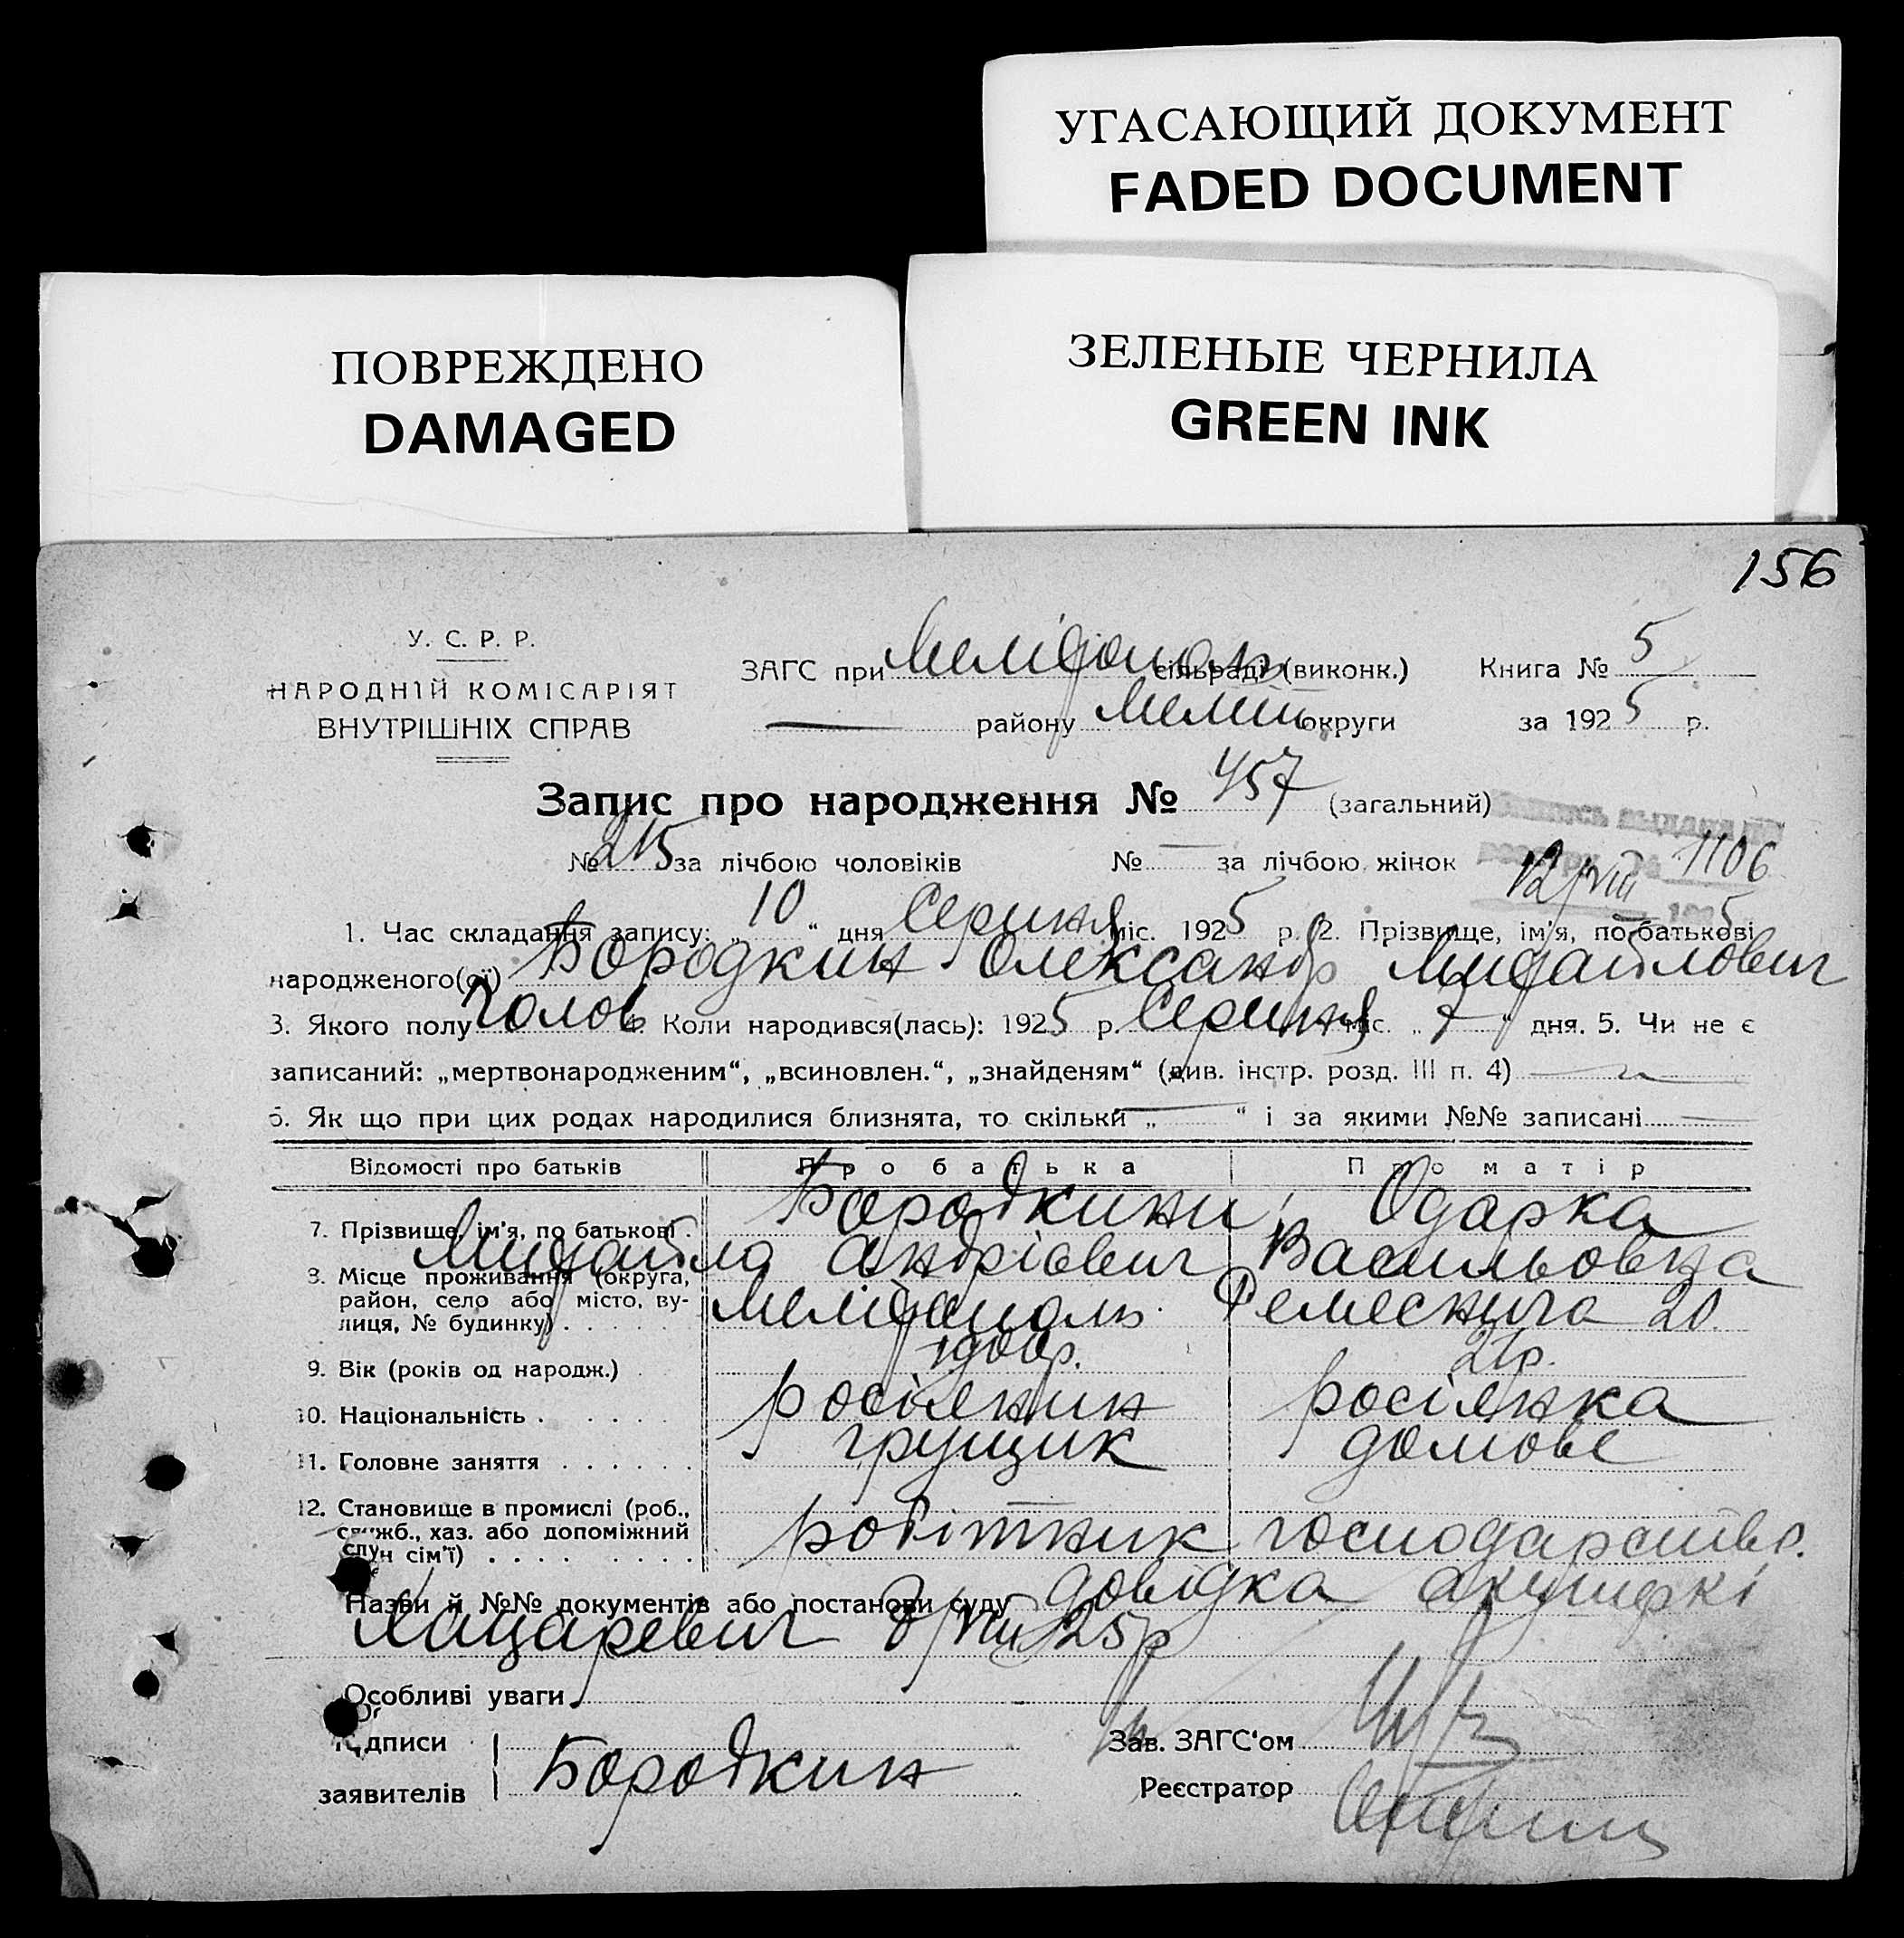 УГАСАЮЩИЙ ДОКУМЕНТ
FADED DOCUMENT
ПОВРЕЖДЕНО
DAMAGED
ЗЕЛЕНЫЕ ЧЕРНИЛА
GREEN INK
156
У. С. Р. Р.
НАРОДНІЙ КОМІСАРІЯТ
ВНУТРІШНІХ СПРАВ
ЗАГС при Мелітополь сільраді (виконк.) Книга № 5
— району Меліт. округи за 1925 р.
Запис про народження № 457 (загальний)
№ 215 за лічбою чоловіків № — за лічбою жінок
выдана 1106
12/VIII 1925
1. Час складання запису: „ 10 “ дня Серпня міс. 1925 р. 2. Прізвище, ім'я, по батькові
народженого(ої) Бородкин Олександр Михайлович
3. Якого полу чолов 4. Коли народився(лась): 1925 р. Серпня міс. „ 7 “ дня. 5. Чи не є
записаний: „мертвонародженим“, „всиновлен.“, „знайденям“ (див. інстр. розд. III п. 4)
6. Як що при цих родах народилися близнята, то скільки „ — “ і за якими №№ записані —
Відомості про батьків Про батька Про матір
7. Прізвище, ім'я, по батькові . Бородкини, Одарка
Михайло Андрієвич Васильовна
8. Місце проживання (округа,
район, село або місто, ву-
лиця, № будинку) . . . . . Мелітополь Ремеснича 20
9. Вік (років од народж.) . 1900р. 21р.
10. Національність . . . . . росіянин росіянка
11. Головне заняття . . . . . . грущик домове
12. Становище в промислі (роб.,
служб., хаз. або допоміжний
член сім'ї) . . . . . . . . робітник господарств.
Назви й №№ документів або постанови суду довідка акушерки
Хацаревич 8/VIII 25р
Особливі уваги
Підписи
заявителів Бородкин
Зав. ЗАГС'ом
Реєстратор